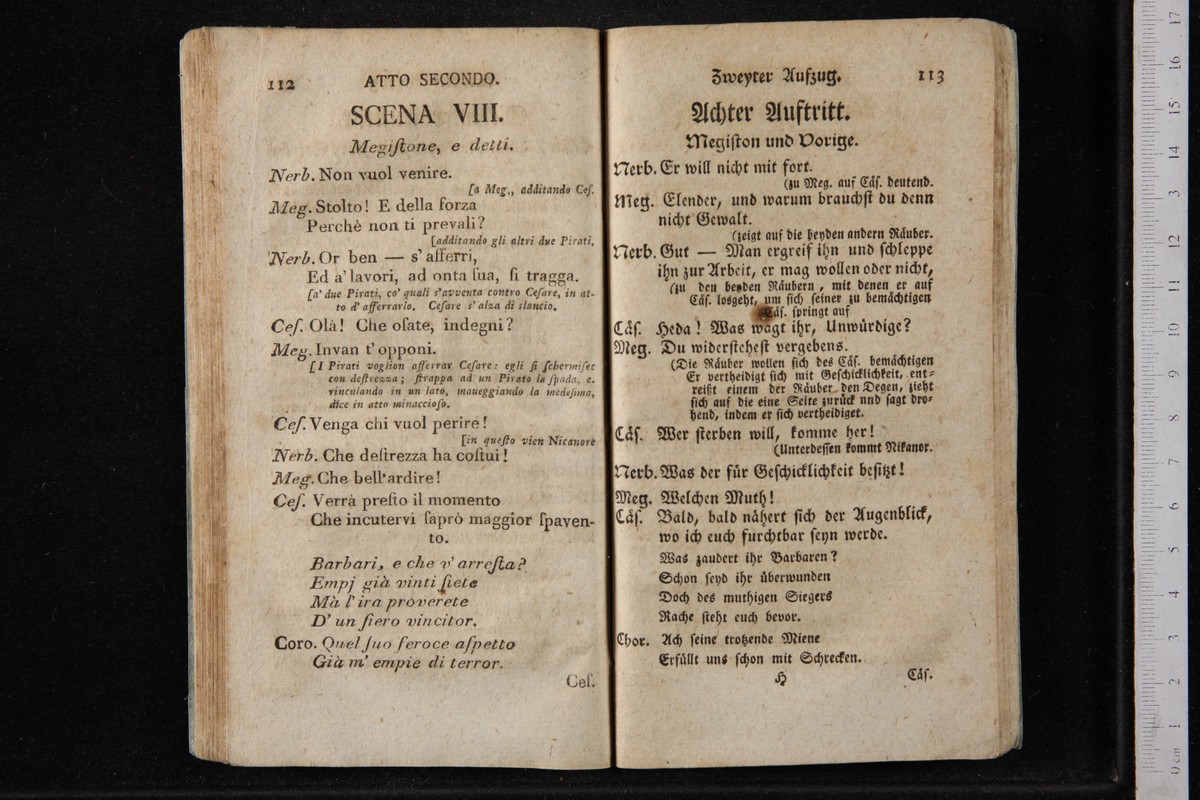 112 ATTO SECONDO.
SCENA VIII.
Megiſtone, e detti.
Nerb. Non vuol venire.
[a Meg., additando Ceſ.
Meg. Stolto! E della forza
Perchè non ti prevali?
[additando gli altri due Pirati.
Nerb. Or ben — s' afferri,
Ed a' lavori, ad onta ſua, ſi tragga.
[a' due Pirati, co' quali s'avventa contro Ceſare, in at-
to d' afferrarlo. Ceſare s' alza di slancio.
Ceſ. Olà! Che oſate, indegni?
Meg. Invan t' opponi.
[I Pirati voglion afferrar Ceſare: egli ſi ſchermiſec
con deſtrezza; ſtrappa ad un Pirato la ſpada, e.
rinculando in un lato, maneggiando la medeſima,
dice in atto minaccioſo.
Ceſ. Venga chi vuol perire!
[in queſto vien Nicanore
Nerb. Che deſtrezza ha coſtui!
Meg. Che bell' ardire!
Ceſ. Verrà preſto il momento
Che incutervi ſaprò maggior ſpaven-
to.
Barbari, e che v' arreſta?
Empj già vinti ſiete
Mà l' ira proverete
D' un fiero vincitor.
Coro. Quel ſuo feroce aſpetto
Già m' empie di terror.
Ceſ.
Zweyter Aufzug. 113
Achter Auftritt.
Megiſton und Vorige.
Nerb. Er will nicht mit fort.
(zu Meg. auf Cäſ. deutend.
Meg. Elender, und warum brauchſt du denn
nicht Gewalt.
(zeigt auf die beyden andern Räuber.
Nerb. Gut — Man ergreif ihn und ſchleppe
ihn zur Arbeit, er mag wollen oder nicht,
(zu den beyden Räubern, mit denen er auf
Cäſ. losgeht, um ſich ſeiner zu bemächtigen
Cäſ. ſpringt auf
Cäſ. Heda! Was wagt ihr, Unwürdige?
Meg. Du widerſteheſt vergebens.
(Die Räuber wollen ſich des Cäſ. bemächtigen
Er vertheidigt ſich mit Geſchicklichkeit, ent-
reißt einem der Räuber den Degen, zieht
ſich auf die eine Seite zurück nnd ſagt dro-
hend, indem er ſich vertheidiget.
Cäſ. Wer ſterben will, komme her!
(Unterdeſſen kommt Nikanor.
Nerb. Was der für Geſchicklichkeit beſitzt!
Meg. Welchen Muth!
Cäſ. Bald, bald nähert ſich der Augenblick,
wo ich euch furchtbar ſeyn werde.
Was zaudert ihr Barbaren?
Schon ſeyd ihr überwunden
Doch des muthigen Siegers
Rache ſteht euch bevor.
Chor. Ach ſeine trotzende Miene
Erfüllt uns ſchon mit Schrecken.
H Cäſ.
17
16
15
14
13
12
11
10
9
8
7
6
5
4
3
2
1
0 cm